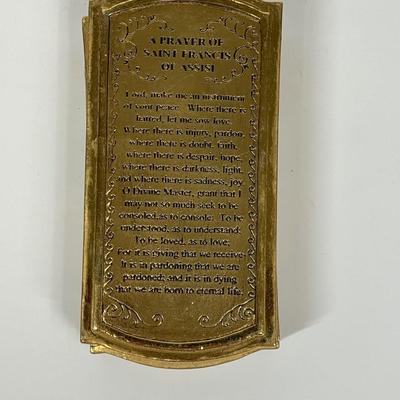 A PRAYER OF
SAINT FRANCIS
OF ASSISI
Lord, make me an instrument
of your peace. Where there is
hatred, let me sow love.
Where there is injury, pardon.
where there is doubt, faith,
where there is despair, hope,
where there is darkness, light,
and where there is sadness, joy
O Divine Master, grant that I
may not so much seek to be
consoled,as to console. To be
understood, as to understand;
To be loved, as to love;
For it is giving that we receive
It is in pardoning that we are
pardoned; and it is in dying
that we are born to eternal life.